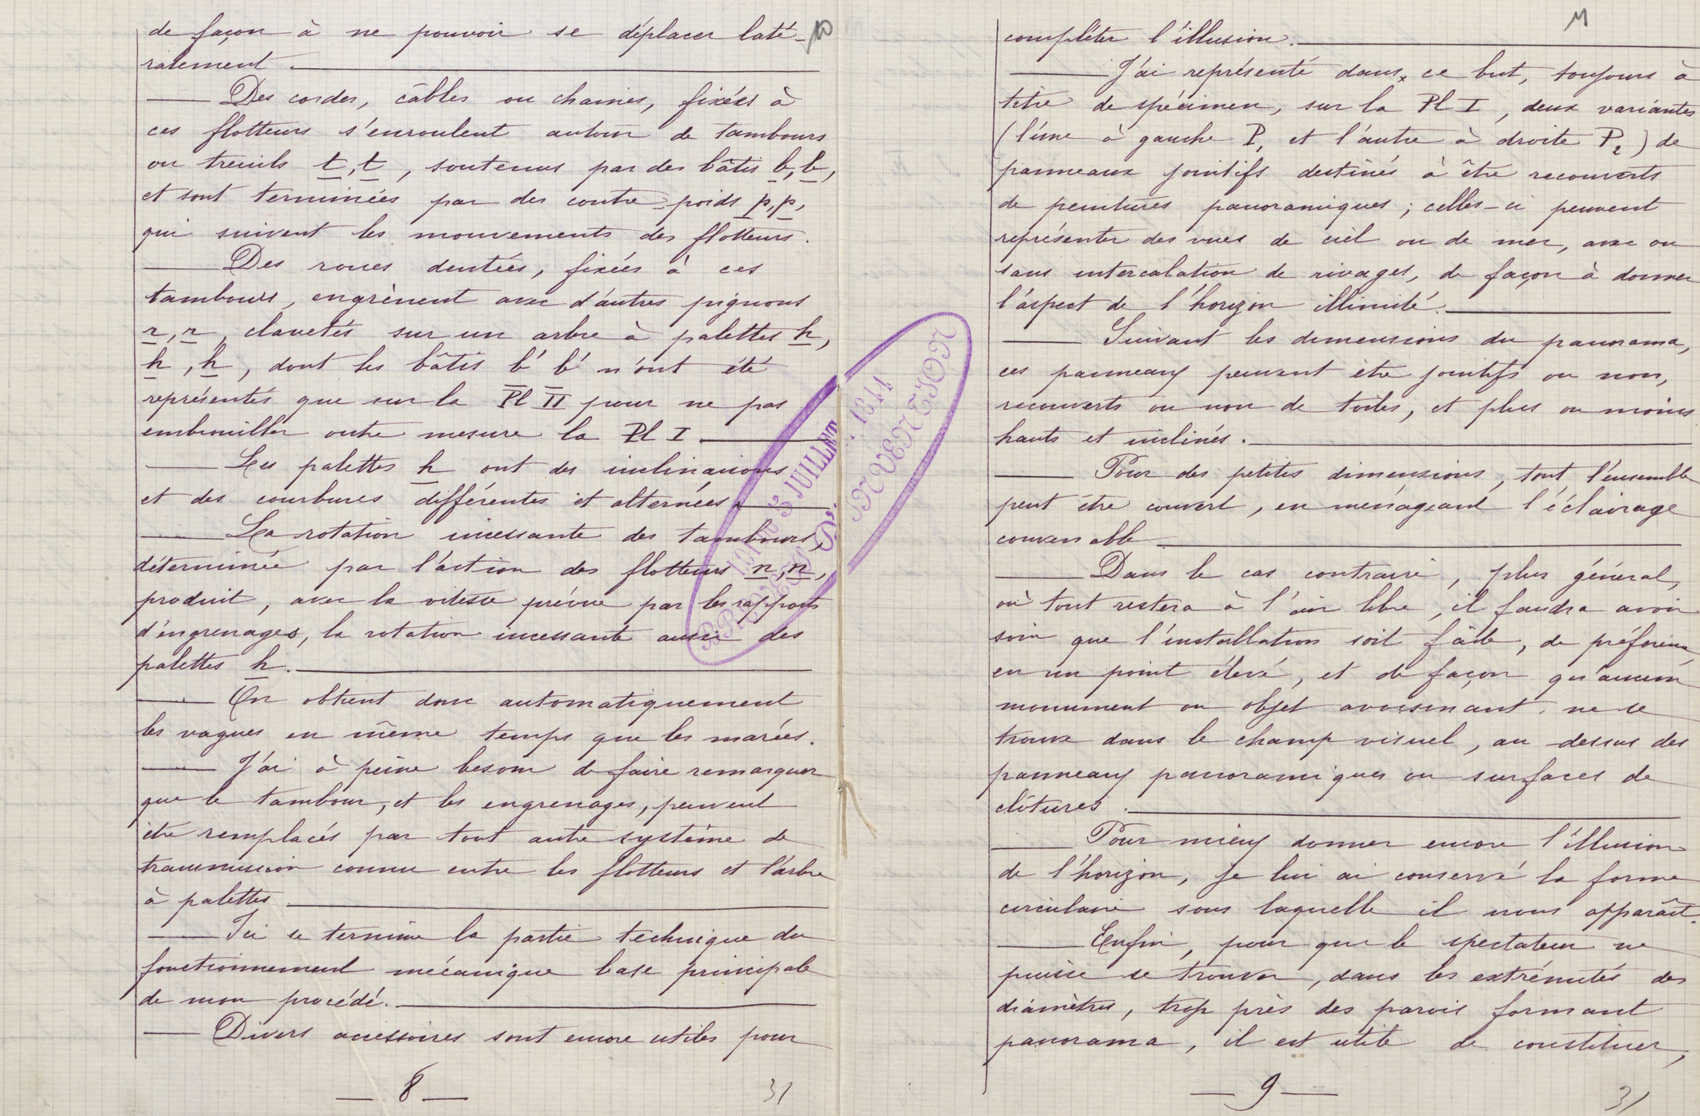 de façon à ne pouvoir se déplacer laté-
ralement.
Des cordes, câbles ou chaines, fixées à
ces flotteurs s'enroulent autour de tambours
ou treuils t, t, soutenus par des bâtis b, b,
et sont terminées par des contre-poids p, p,
qui suivent les mouvements des flotteurs.
Des roues dentées, fixées à ces
tambours, engrènent avec d'autres pignons
r, r, clavetés sur un arbre à palettes h,
h, h, dont les bâtis b' b' n'ont été
représentés que sur la Pl II pour ne pas
embrouiller outre mesure la Pl I.
Les palettes h ont des inclinaisons
et des courbures différentes et alternées.
La rotation incessante des tambours
déterminée par l'action des flotteurs n, n,
produit, avec la vitesse prévue par les rapports
d'engrenages, la rotation incessante aussi des
palettes h.
On obtient donc automatiquement
les vagues en même temps que les marées.
J'ai à peine besoin de faire remarquer
que le tambour, et les engrenages, peuvent
être remplacés par tout autre système de
transmission connu entre les flotteurs et l'arbre
à palettes
Ici se termine la partie technique du
fonctionnement mécanique base principale
de mon procédé.
Divers accessoires sont encore utiles pour
8
31
11
compléter l'illusion.
J'ai représenté dans ce but, toujours à
titre de spécimen, sur la Pl I, deux variantes
(l'une à gauche P, et l'autre à droite P2) de
panneaux jointifs destinés à être recouverts
de peintures panoramiques; celles-ci peuvent
représenter des vues de ciel ou de mer, avec ou
sans intercalation de rivages, de façon à donner
l'aspect de l'horizon illimité.
Suivant les dimensions du panorama,
ces panneaux peuvent être jointifs ou non,
recouverts ou non de toiles, et plus ou moins
hauts et inclinés.
Pour des petites dimensions, tout l'ensemble
peut être couvert, en ménageant l'éclairage
convenable
Dans le cas contraire, plus général,
où tout restera à l'air libre, il faudra avoir
soin que l'installation soit faite, de préférence
en un point élevé, et de façon qu'aucun
monument ou objet avoisinant ne se
trouve dans le champ visuel, au-dessus des
panneaux panoramiques ou surfaces de
clôtures.
Pour mieux donner encore l'illusion
de l'horizon, je lui ai conservé la forme
circulaire sous laquelle il nous apparaît.
Enfin, pour que le spectateur ne
puisse se trouver, dans les extrémités des
diamètres, trop près des parois formant
panorama, il est utile de constituer,
9
31
JUILLET 1844
D'INVENTION